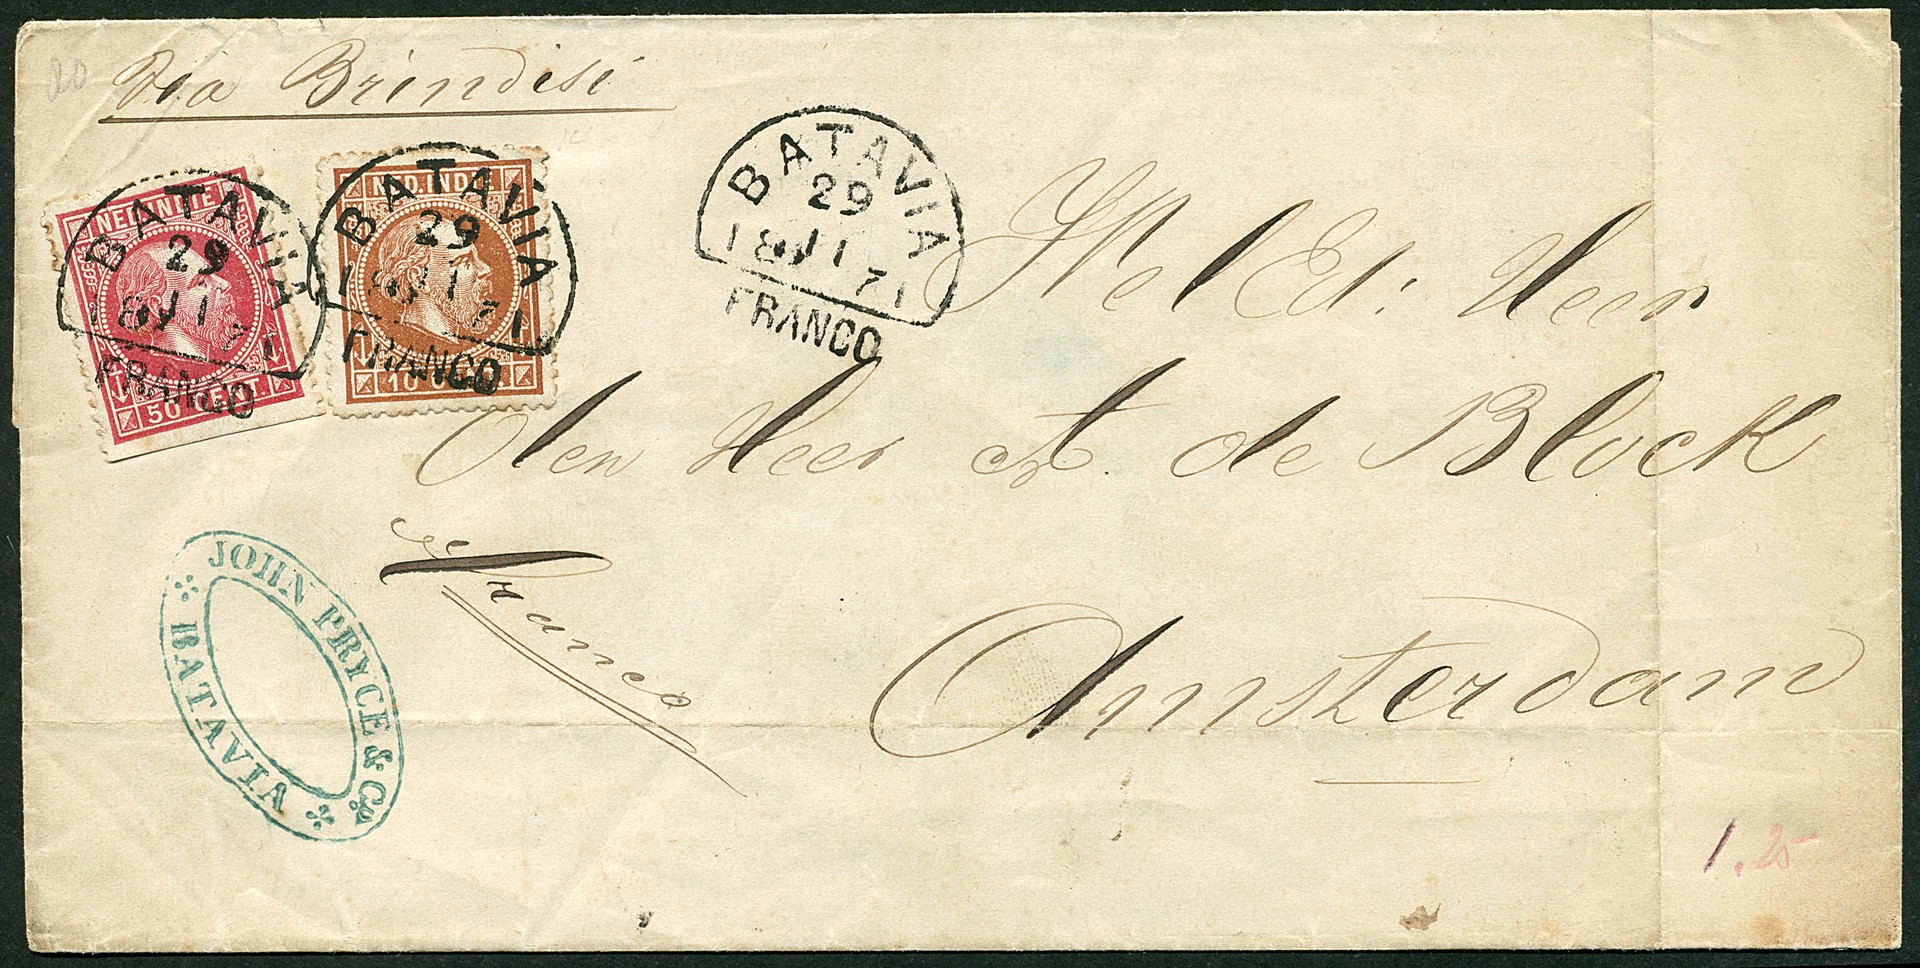 20
Via Brindisi
NED. INDIE
50 CENT.
BATAVIA
29
18 71
FRANCO
NED. INDIE
10
BATAVIA
29
18 71
FRANCO
BATAVIA
29
18 71
FRANCO
Wel Ed: Heer
Den Heer A. de Block
Franco
Amsterdam
JOHN PRYCE & Co
BATAVIA
1.25